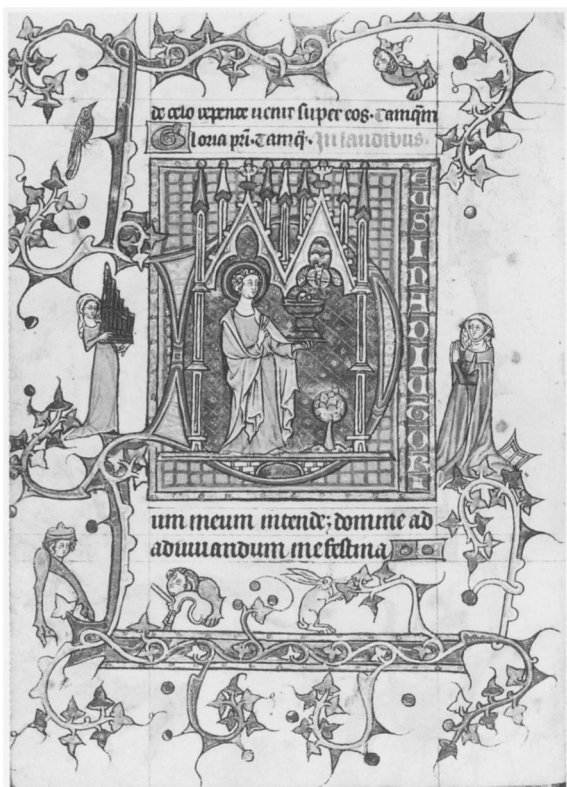 de celo repente uenit super eos. Tamqm̄
Gloria pri. Tamq̄. In laudibus.
DEUS IN ADIUTORI
um meum intende; domine ad
adiuuandum me festina